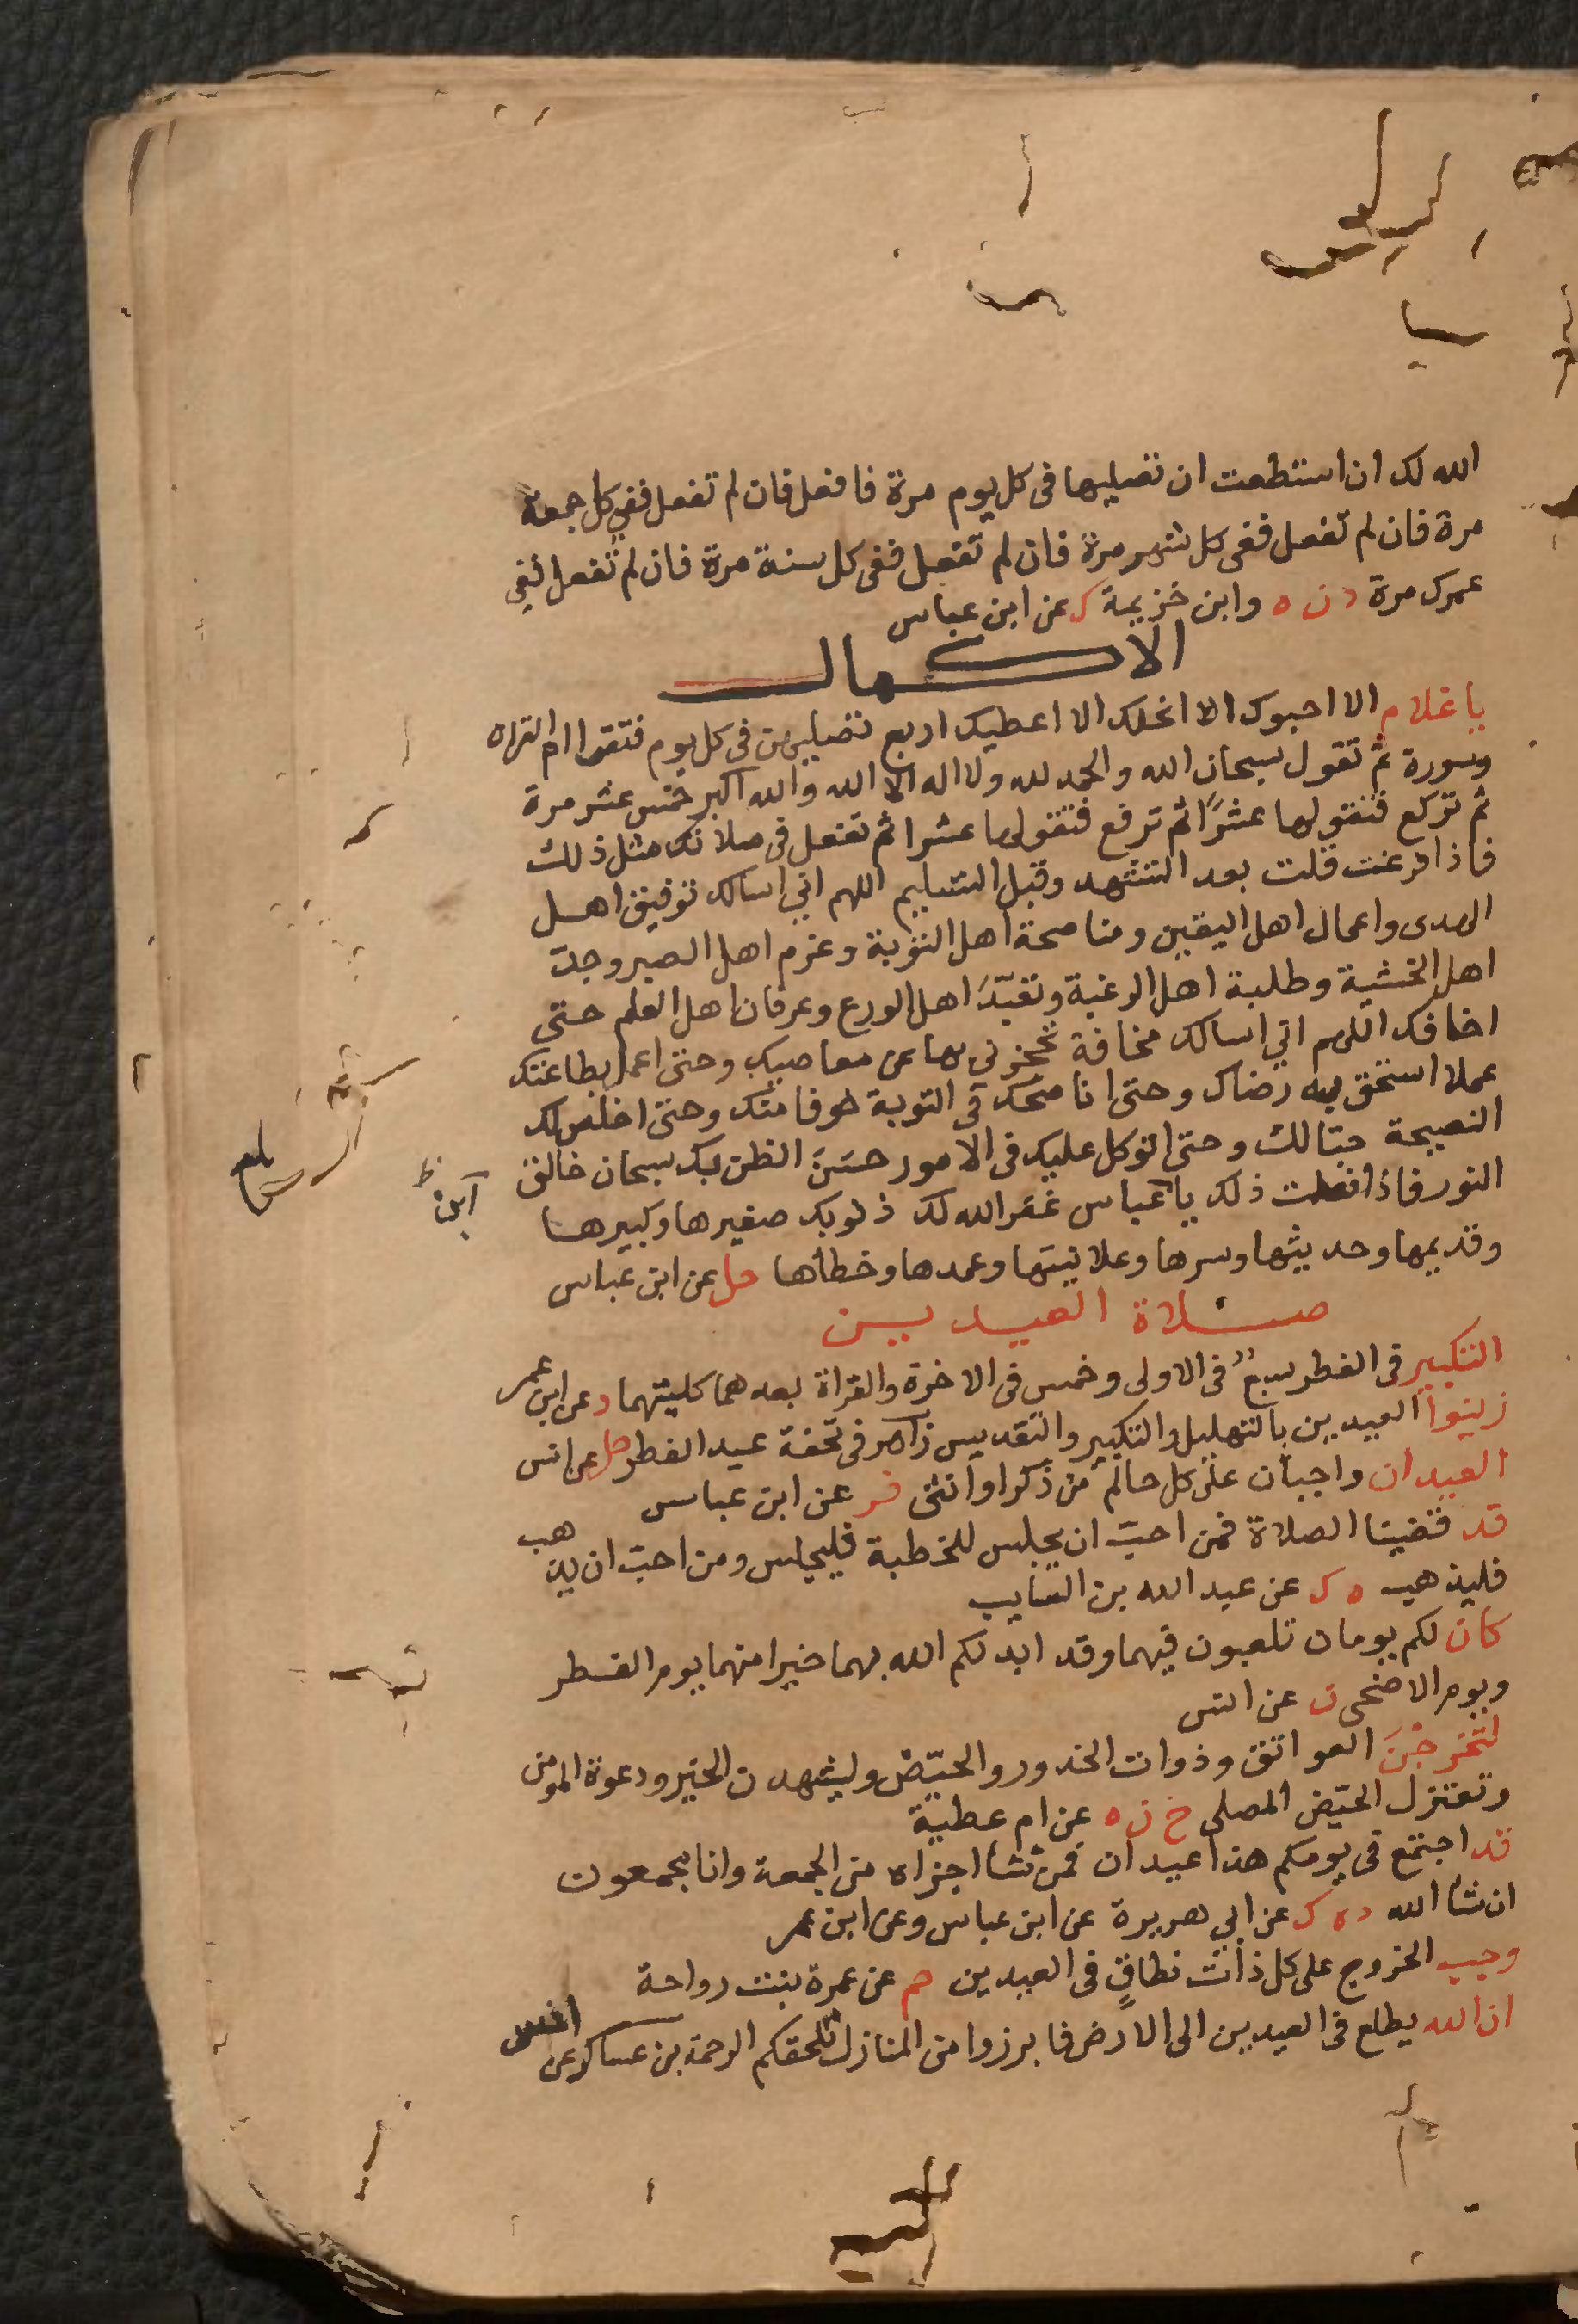 الله لك ان استطعت ان تصليها فى كل يوم مرة فافعل فان لم تفعل ففي كل جمعة
مرة فان لم تفعل ففى كل شهر مرة فان لم تفعل ففى كل سنة مرة فان لم تفعل ففي
عمرك مرة د ن ه وابن خزيمة ك عن ابن عباس
الاكمال
يا غلام الا احبوك الا انحلك الا اعطيك اربع تصليهن فى كل يوم فتقرا ام القران
وسورة ثم تقول سبحان الله والحمد لله ولا اله الا الله والله اكبر خمس عشر مرة
ثم تركع فتقولها عشرًا ثم ترفع فتقولها عشرا ثم تفعل فى صلاتك مثل ذلك
فاذا فرغت قلت بعد التشهد وقبل التسليم اللهم اني اسالك توفيق اهل
الهدى واعمال اهل اليقين ومناصحة اهل التوبة وعزم اهل الصبر وجدّ
اهل الخشية وطلبة اهل الرغبة وتعبّدَ اهل الورع وعرفان اهل العلم حتى
اخافك اللهم اني اسالك مخافة تحجزني بها عن معاصيك وحتى اعمل بطاعتك
عملا استحق به رضاك وحتى اناصحك فى التوبة خوفا منك وحتى اخلص لك
النصيحة حبّا لك وحتى اتوكل عليك فى الامور حسَنَ الظن بك سبحان خالق
النور فاذا فعلت ذلك يا عباس غفر الله لك ذنوبك صغيرها وكبيرها
ابن
وقديمها وحديثها وسرها وعلانيتها وعمدها وخطأها حل عن ابن عباس
صلاة العيدين
التكبير فى الفطر سبعٌ فى الاولى وخمس فى الاخرة والقراة بعدهما كليتهما د عن ابن عمر
زينوا العيدين بالتهليل والتكبير والتقديس زاهر فى تحفة عيد الفطر حل عن انس
العيدان واجبان على كل حالم من ذكر او انثى فر عن ابن عباس
قد قضينا الصلاة فمن احبّ ان يجلس للخطبة فليجلس ومن احبّ ان يذهب
فليذهب ه ك عن عبد الله بن السايب
كان لكم يومان تلعبون فيهما وقد ابدلكم الله بهما خيرا منهما يوم الفطر
ويوم الاضحى ن عن انس
لتخرجْنَ العواتق وذوات الخدور والحيّض وليشهدن الخير ودعوة المومنين
وتعتزل الحيّض المصلى خ ن ه عن ام عطية
قد اجتمع فى يومكم هذا عيدان فمن شأ اجزاه من الجمعة وانا مجمعون
ان شأ الله د ه ك عن ابي هريرة عن ابن عباس وعن ابن عمر
وجب الخروج على كل ذات نطاقٍ فى العيدين حم عن عمرة بنت رواحة
ان الله يطلع فى العيدين الى الارض فابرزوا من المنازل تلحقكم الرحمة بن عساكر عن انس